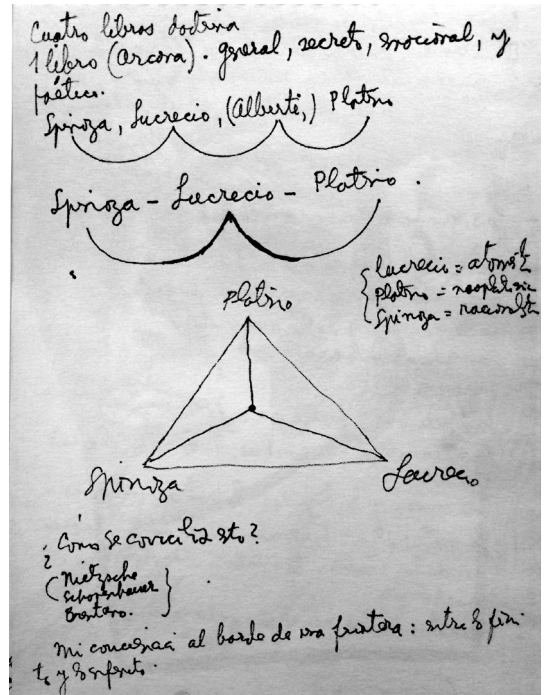 Cuatro libros doctrina
1 libro (Arcana). general, secreto, emocional, y
poético.
Spinoza, Lucrecio, (Alberti,) Plotino
Spinoza - Lucrecio - Plotino.
Lucrecio = atomist
Plotino = neoplatonic
Spinoza = racionalist
Plotino
Spinoza
Lucrecio
¿Cómo se concilia esto?
Nietzsche
Schopenhauer
Brentano.
Mi conciencia al borde de una frontera: entre lo fini
to y lo infinito.